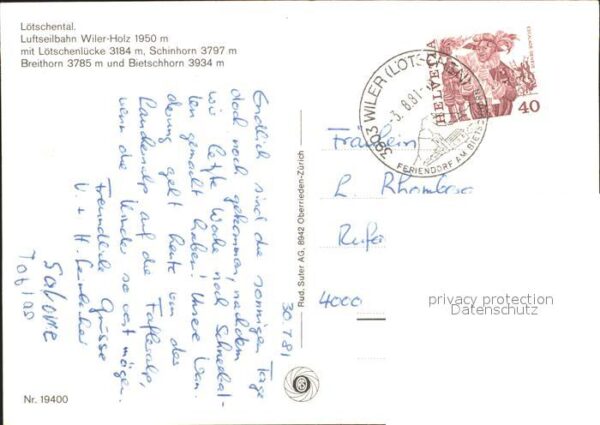 Lötschental.
Luftseilbahn Wiler-Holz 1950 m
mit Lötschenlücke 3184 m, Schinhorn 3797 m
Breithorn 3785 m und Bietschhorn 3934 m
30.7.81
Endlich sind die sonnigen Tage
doch noch gekommen, nachdem
wir letzte Woche noch Schneebal-
len gemacht haben! Unsere Wan-
derung geht heute von der
Lauchernalp auf die Fafleralp,
wenn die Kinder so weit mögen.
Freundliche Grüsse
U. + H.
Salome
Tobias
Nr. 19400
Rud. Suter AG, 8942 Oberrieden-Zürich
HELVETIA
40
3903 WILER (LÖTSCHEN)
-3.8.81
FERIENDORF AM BIETSCHHORN
Fräulein
L.
4000
privacy protection
Datenschutz